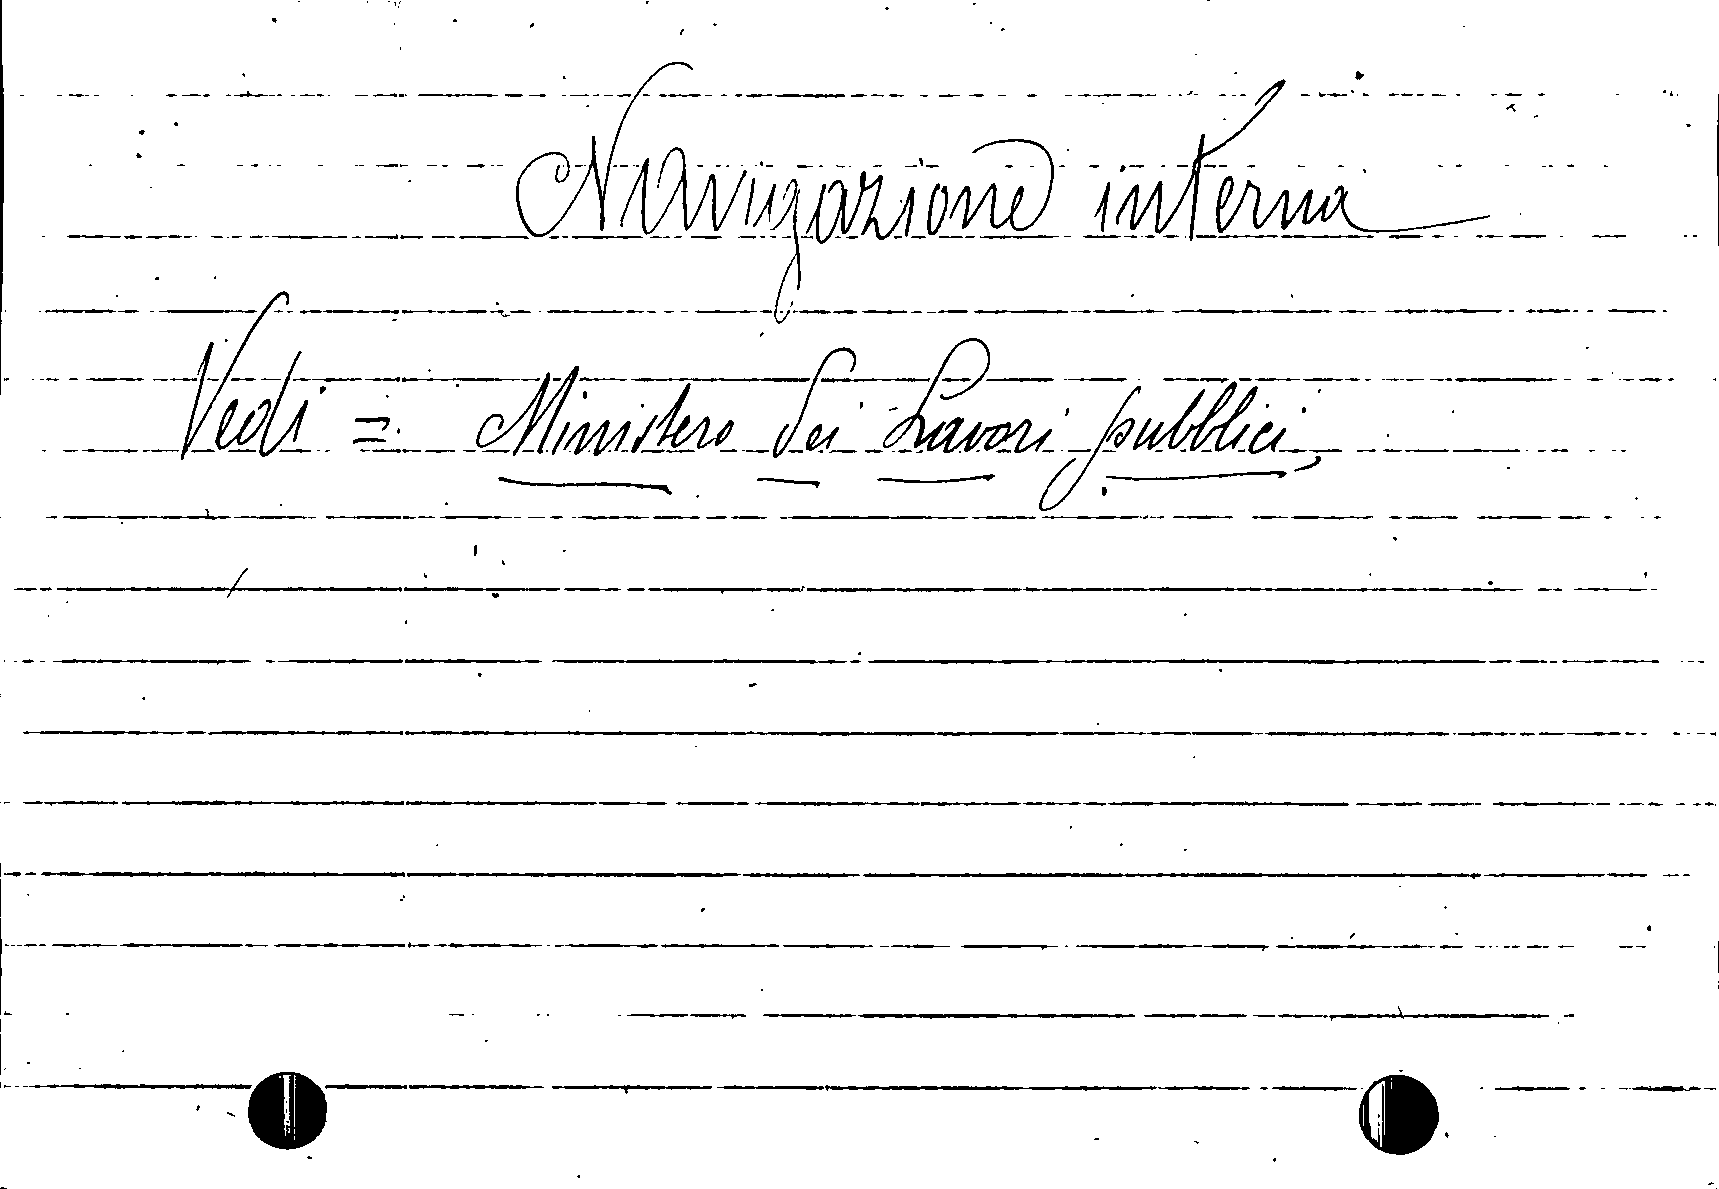 Navigazione interna
Vedi = Ministero dei Lavori pubblici,